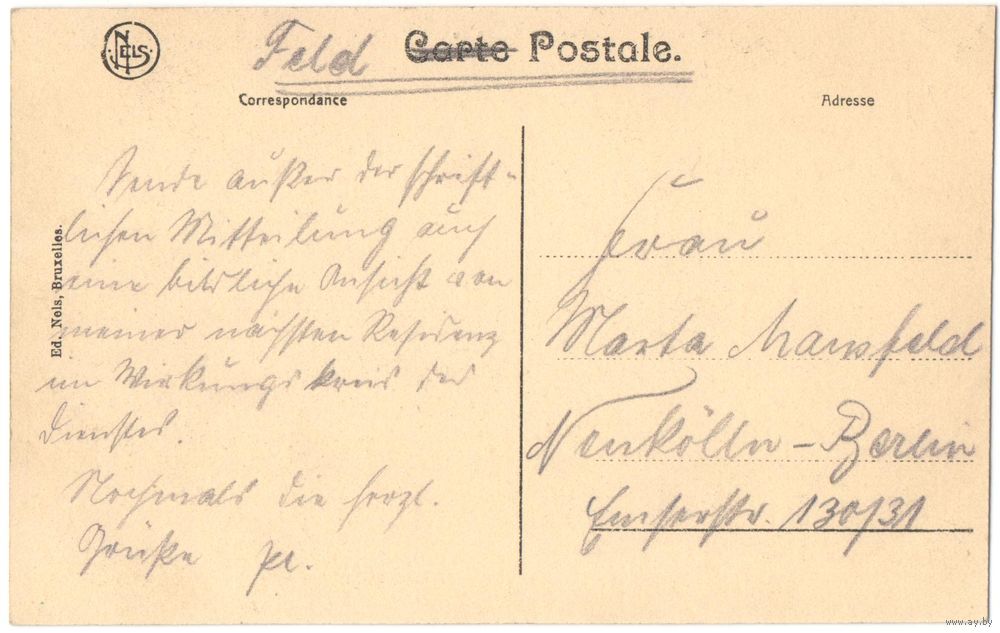 NELS
Feld Carte Postale.
Correspondance
Adresse
Sende außer der schrift-
lichen Mitteilung auch
eine bildliche Ansicht von
meiner nächsten Residenz
im Wirkungskreis des
Dienstes.
Nochmals die herzl.
Grüße
Frau
Marta Mansfeld
Neukölln-Berlin
Emserstr. 130/31
Ed. Nels, Bruxelles.
www.ay.by